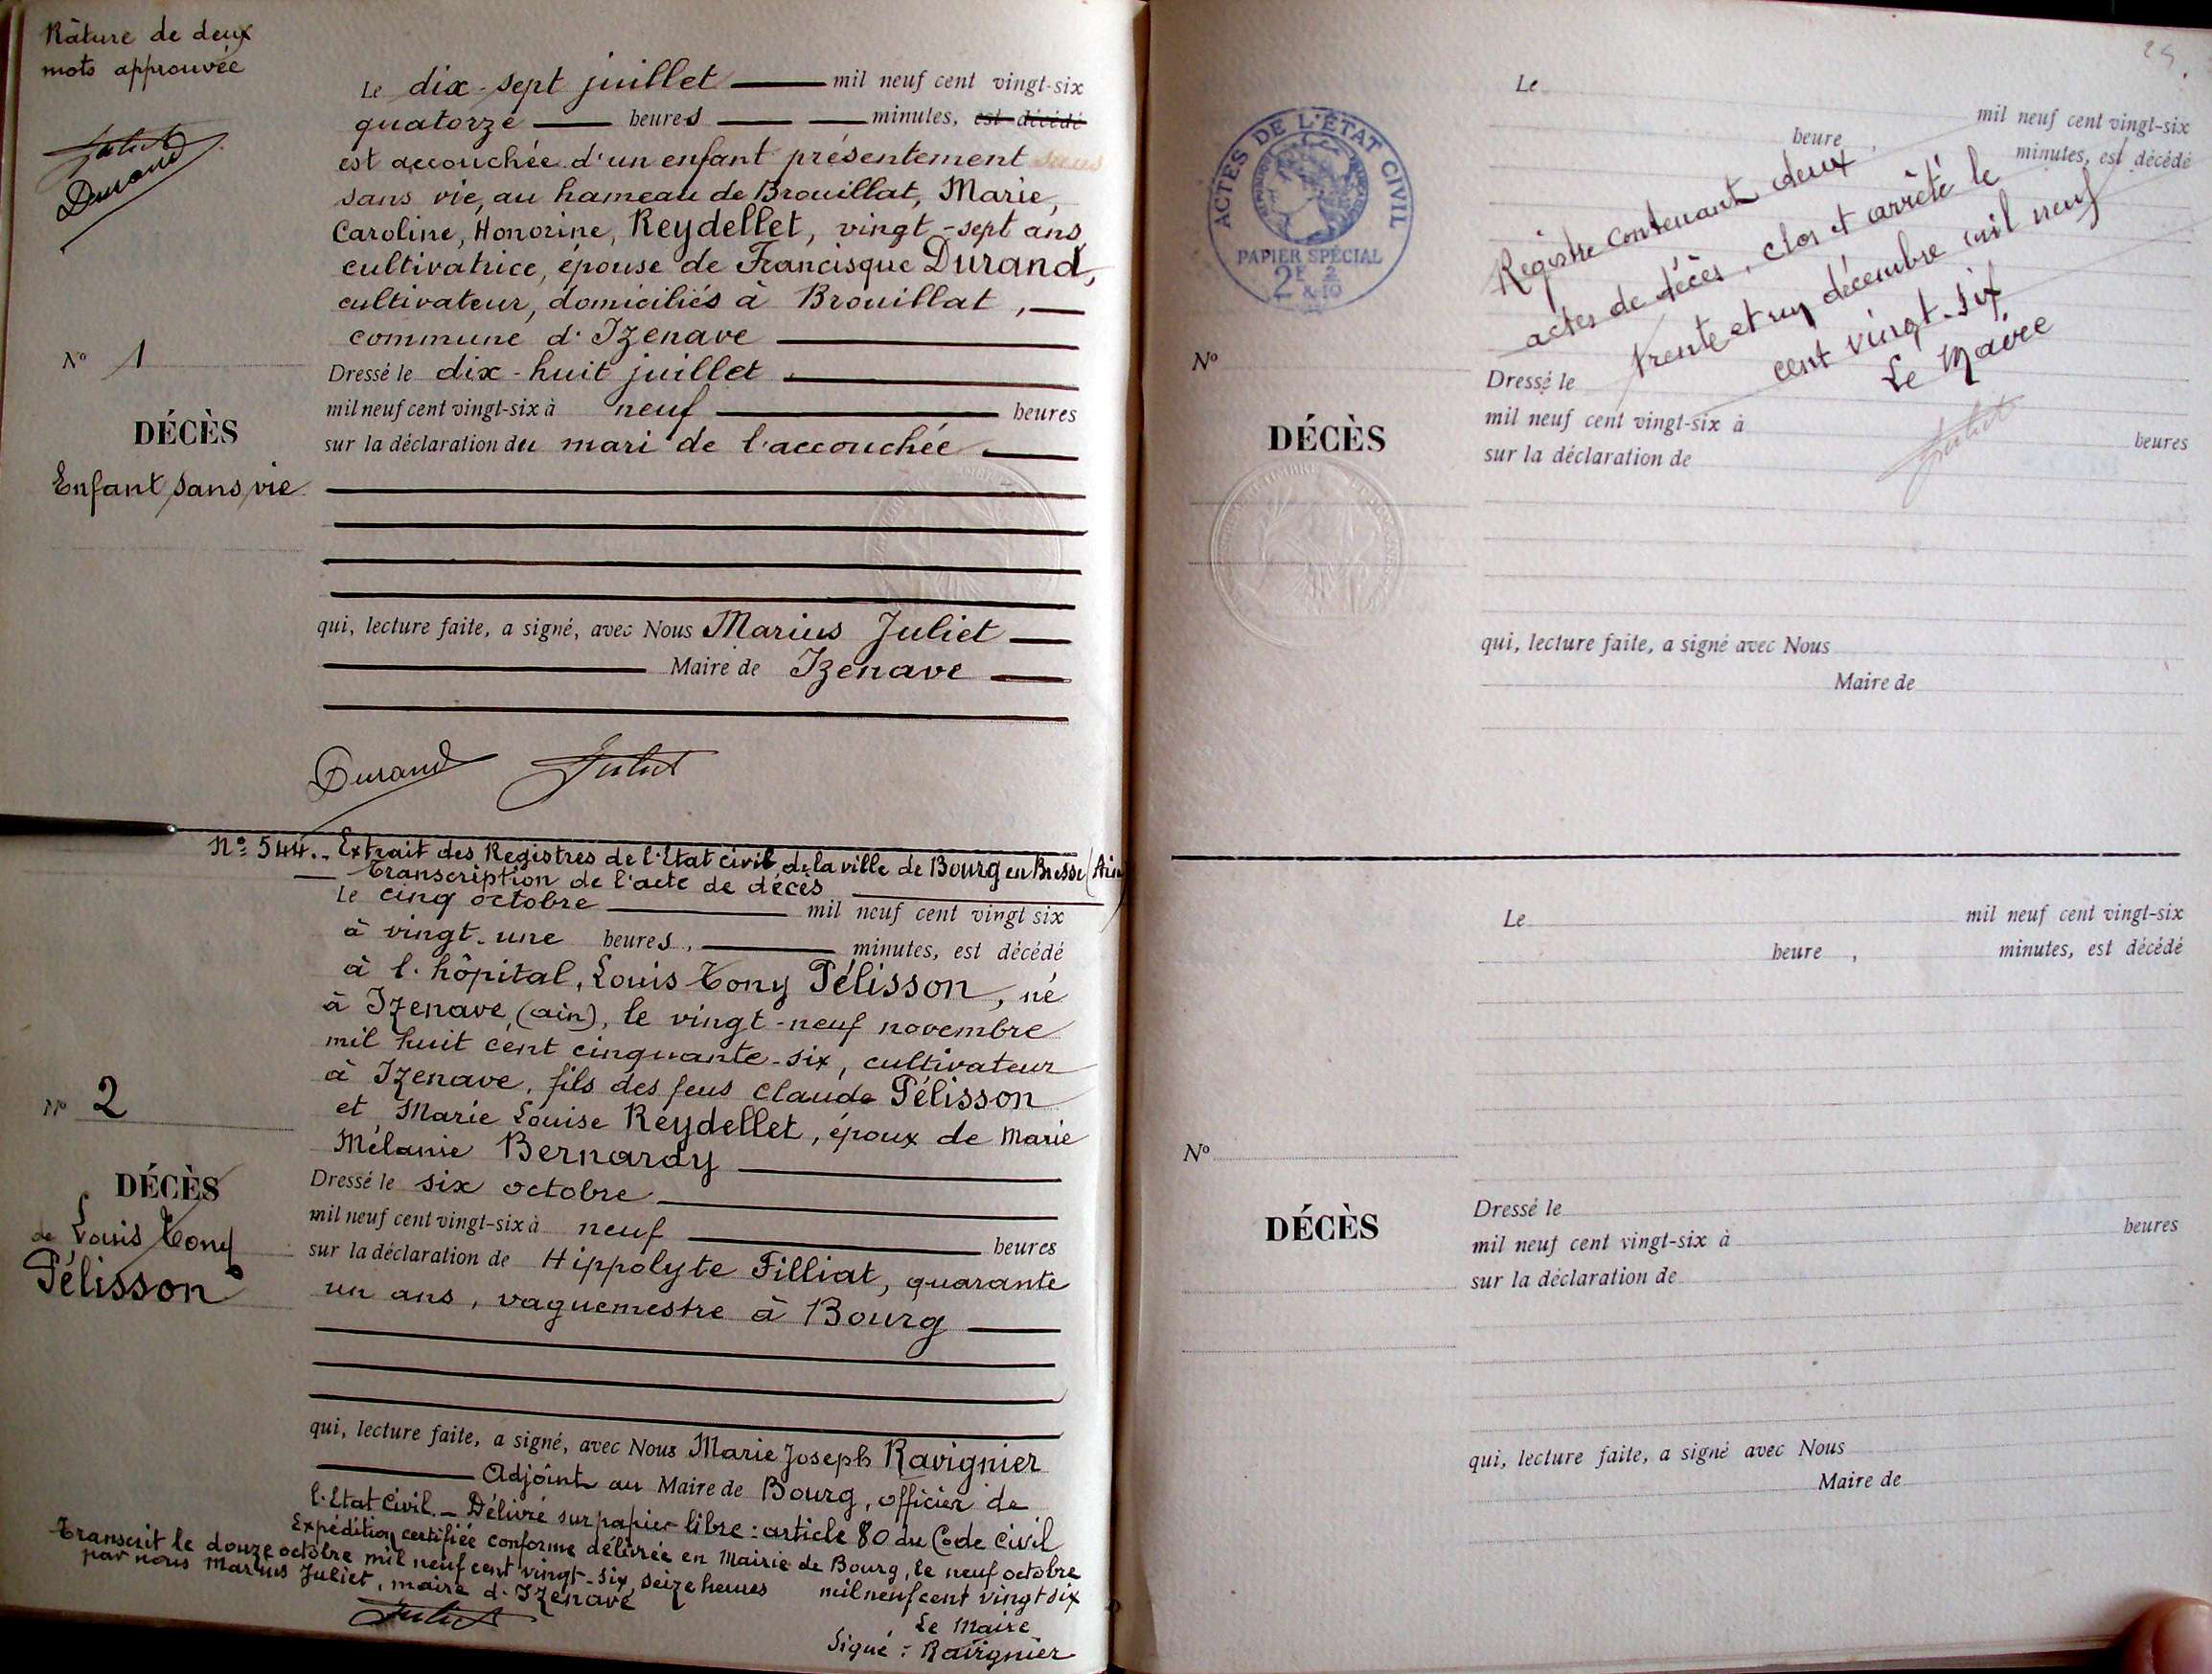 Râture de deux
mots approuvée
Juliet
Durand
Le dix-sept juillet mil neuf cent vingt-six
quatorze heures minutes, est décédé
est accouchée d'un enfant présentement sans
sans vie, au hameau de Brouillat, Marie,
Caroline, Honorine, Reydellet, vingt-sept ans,
cultivatrice, épouse de Francisque Durand,
cultivateur, domiciliés à Brouillat,
commune d'Izenave
Dressé le dix-huit juillet
mil neuf cent vingt-six à neuf heures
sur la déclaration du mari de l'accouchée
N° 1
DÉCÈS
Enfant sans vie
qui, lecture faite, a signé, avec Nous Marius Juliet
Maire de Izenave
Durand Juliet
N° 544._ Extrait des Registres de l'Etat civil de la ville de Bourg en Bresse (Ain)
Transcription de l'acte de décès
Le cinq octobre mil neuf cent vingt six
à vingt-une heures, minutes, est décédé
à l'hôpital, Louis Tony Pélisson, né
à Izenave, (ain), le vingt-neuf novembre
mil huit cent cinquante-six, cultivateur
à Izenave, fils des feus Claude Pélisson
et Marie Louise Reydellet, époux de Marie
Mélanie Bernardy
N° 2
DÉCÈS
de Louis Tony
Pélisson
Dressé le six octobre
mil neuf cent vingt-six à neuf heures
sur la déclaration de Hippolyte Filliat, quarante
un ans, vaguemestre à Bourg
qui, lecture faite, a signé, avec Nous Marie Joseph Ravignier
Adjoint au Maire de Bourg, officier de
l'Etat Civil._ Délivré sur papier libre : article 80 du Code Civil
Expédition certifiée conforme délivrée en Mairie de Bourg, le neuf octobre
mil neuf cent vingt six
Le Maire
Signé : Ravignier
Transcrit le douze octobre mil neuf cent vingt-six, seize heures
par nous Marius Juliet, maire d'Izenave
Juliet
25.
ACTES DE L'ÉTAT CIVIL
PAPIER SPÉCIAL
2F & 2/10
Le mil neuf cent vingt-six
heure, minutes, est décédé
Registre contenant deux
actes de décès, clos et arrêté le
trente et un décembre mil neuf
cent vingt-six
Le Maire
Juliet
N°
DÉCÈS
Dressé le
mil neuf cent vingt-six à heures
sur la déclaration de
qui, lecture faite, a signé avec Nous
Maire de
Le mil neuf cent vingt-six
heure, minutes, est décédé
N°
DÉCÈS
Dressé le
mil neuf cent vingt-six à heures
sur la déclaration de
qui, lecture faite, a signé avec Nous
Maire de